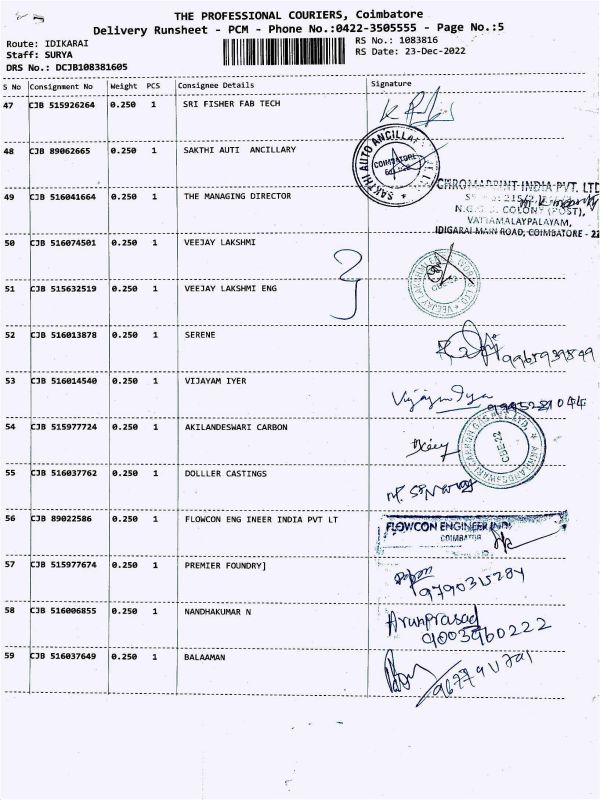 THE PROFESSIONAL COURIERS, Coimbatore
Delivery Runsheet - PCM - Phone No.:0422-3505555 - Page No.:5
Route: IDIKARAI
RS No.: 1083816
Staff: SURYA
RS Date: 23-Dec-2022
DRS No.: DCJB108381605
S No Consignment No Weight PCS Consignee Details Signature
47 CJB 515926264 0.250 1 SRI FISHER FAB TECH
48 CJB 89062665 0.250 1 SAKTHI AUTI ANCILLARY
COIMBATORE
49 CJB 516041664 0.250 1 THE MANAGING DIRECTOR
CHROMAPRINT INDIA PVT. LTD
COLONY (POST),
VATTAMALAYPALAYAM,
IDIGARAI MAIN ROAD, COIMBATORE - 22
50 CJB 516074501 0.250 1 VEEJAY LAKSHMI
51 CJB 515632519 0.250 1 VEEJAY LAKSHMI ENG
52 CJB 516013878 0.250 1 SERENE
9965939849
53 CJB 516014540 0.250 1 VIJAYAM IYER
54 CJB 515977724 0.250 1 AKILANDESWARI CARBON
55 CJB 516037762 0.250 1 DOLLLER CASTINGS
56 CJB 89022586 0.250 1 FLOWCON ENG INEER INDIA PVT LT
FLOWCON ENGINEER
COIMBATOR
57 CJB 515977674 0.250 1 PREMIER FOUNDRY]
58 CJB 516006855 0.250 1 NANDHAKUMAR N
Arunprasad
9003960222
59 CJB 516037649 0.250 1 BALAAMAN